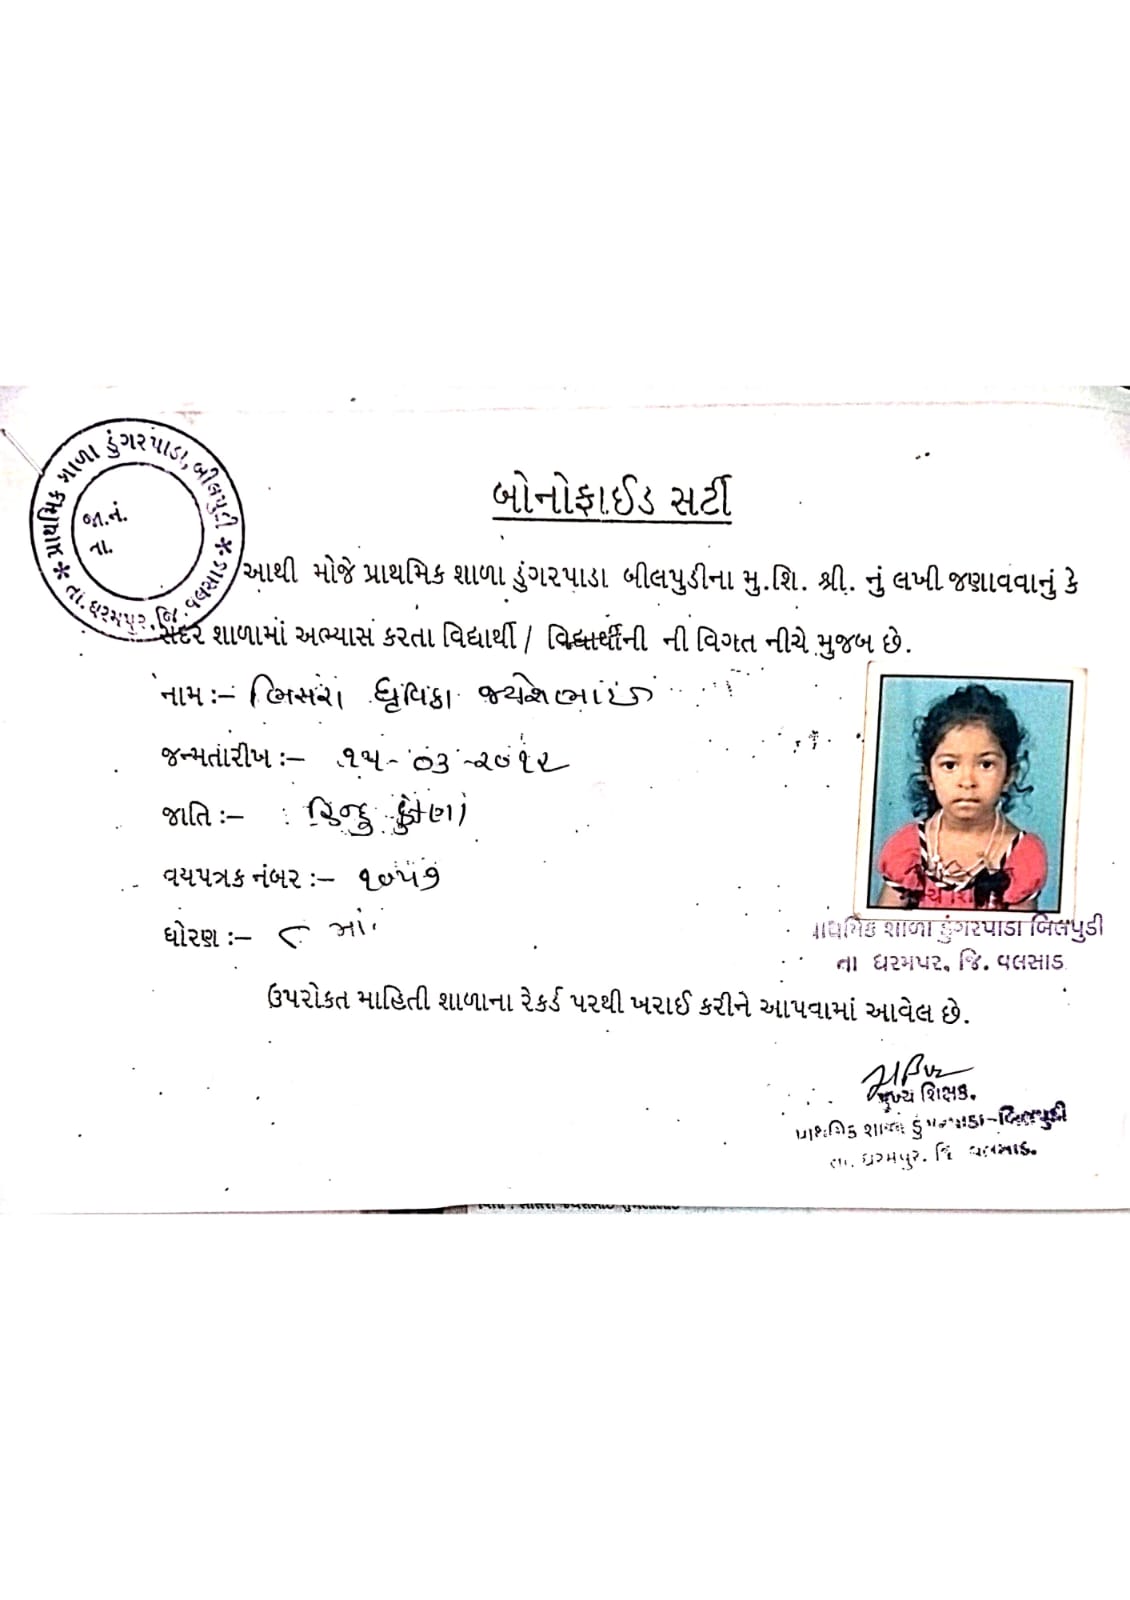 પ્રાથમિક શાળા ડુંગરપાડા, બીલપુડી
તા. ધરમપુર, જિ. વલસાડ
જા.નં.
તા.
બોનોફાઈડ સર્ટી
આથી મોજે પ્રાથમિક શાળા ડુંગરપાડા બીલપુડીના મુ.શિ. શ્રી. નું લખી જણાવવાનું કે
સદર શાળામાં અભ્યાસ કરતા વિદ્યાર્થી / વિદ્યાર્થીની ની વિગત નીચે મુજબ છે.
નામ :- ધૃવિકા જયેશભાઈ
જન્મતારીખ :- ૧૫-૦૩-૨૦૧૨
જાતિ :- હિન્દુ કુંકણા
વયપત્રક નંબર :- ૧૦૫૭
ધોરણ :- ૮ માં
પ્રાથમિક શાળા ડુંગરપાડા બિલપુડી
તા ધરમપર. જિ. વલસાડ
ઉપરોકત માહિતી શાળાના રેકર્ડ પરથી ખરાઈ કરીને આપવામાં આવેલ છે.
મુખ્ય શિક્ષક.
પ્રાથમિક શાળા ડુંગરપાડા-બિલપુડી
તા. ધરમપુર. જિ વલસાડ.